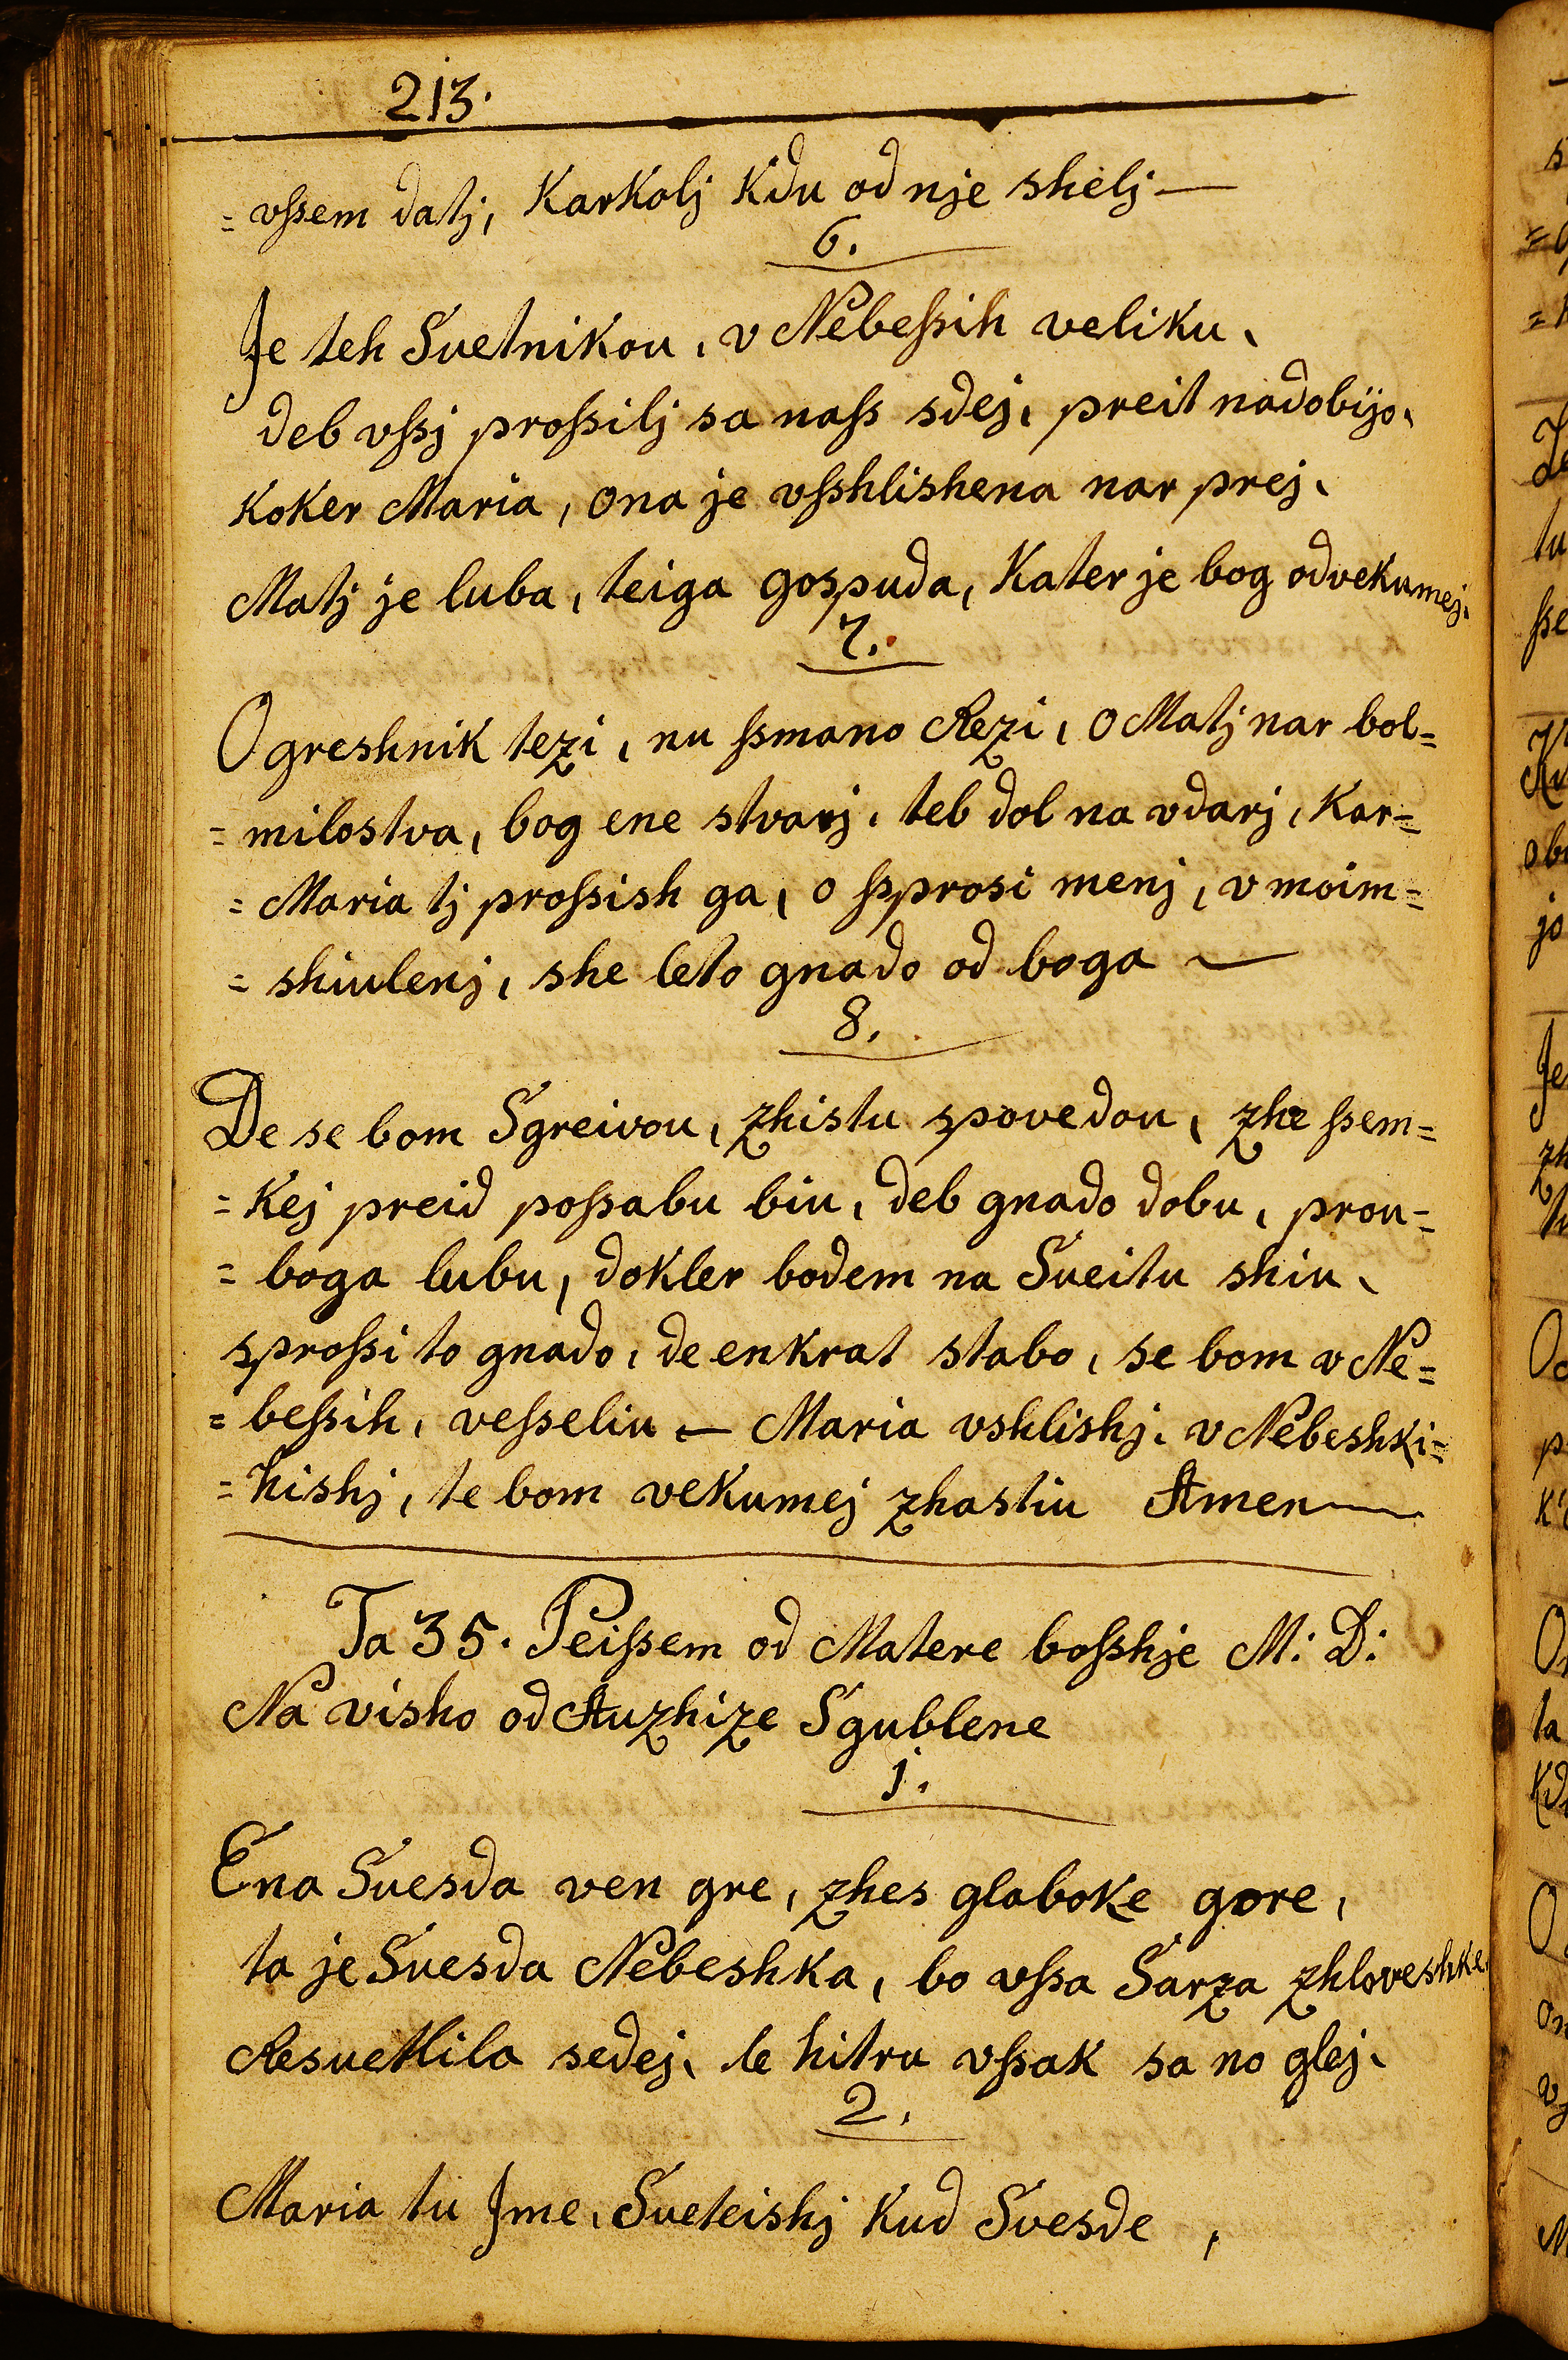 213.
= vſsem datj, Karkolj Kdu od nje shelj —
6.
Je teh Suetnikou, v Nebeſsih veliku,
deb vſsj proſsilj sa naſs sdej, preit nadobijo,
Koker Maria, ona je vſshlishena nar prej,
Matj je luba, teiga gospuda, Kater je bog odvekumej,
7.
O greshnik tezi, nu ſsmano Rezi, o Matj nar bol=
= milostva, bog ene stvarj, teb dol na vdarj, Kar=
= Maria tj proſsish ga, o ſsprosi menj, v moim=
= shiulenj, she leto gnado od boga —
8.
De se bom Sgreivou, zhistu spovedou, zhe ſsem=
= Kej preid poſsabu biu, deb gnado dobu, prou=
= boga lubu, dokler bodem na Sueitu shiu,
sproſsi to gnado, de enkrat stabo, se bom v Ne=
= beſsih, veſseliu — Maria vshlishj, v Nebeshki=
= hishj, te bom vekumej zhastiu Amen —
Ta 35. Peiſsem od Matere boſshje M: D:
Na visho od Auzhize Sgublene
1.
Ena Suesda ven gre, zhes glaboke gore,
ta je Suesda Nebeshka, bo vſsa Sarza zhloveshke,
Resuetlila sedej, le hitru vſsak sa no glej,
2.
Maria tu Jme, Sueteishj Kud Suesde,